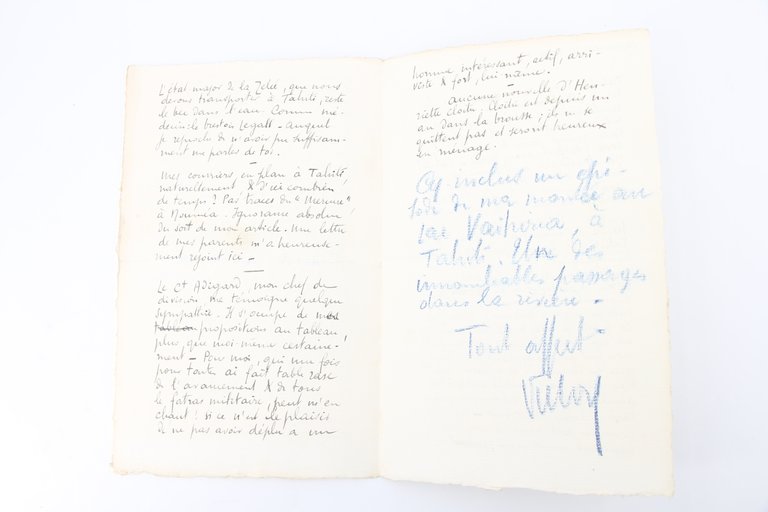 L'état major de la Zélée, que nous
devons transporter à Tahiti, reste
le bec dans l'eau. Comme mé-
decin le breton Legall - auquel
je reproche de n'avoir pas suffisam-
ment me parler de toi.
Mes courriers, en plan à Tahiti,
naturellement & d'ici combien
de temps? Pas traces du "Mercure"
à Nouméa. Ignorance absolue
du sort de mon article. Une lettre
de mes parents m'a heureuse-
ment rejoint ici -
Le Ct Adigard, mon chef de
division, me témoigne quelque
sympathie. Il s'occupe de mes
tableau propositions au tableau
plus que moi même certaine-
ment - Pour moi, qui une fois
pour toutes ai fait table rase
de l'avancement & de tout
le fatras militaire, peut m'en
chaut! si ce n'est le plaisir
de ne pas avoir déplu à un
homme intéressant, actif, arri-
viste & fort, lui même.
Aucune nouvelle d'Hen-
riette Cloitre; Cloitre est depuis un
an dans la brousse; ils ne se
quittent pas et seront heureux
en ménage.
Ci inclus un épi-
sode de ma montée au
lac Vaihiria, à
Tahiti. Un des
innombrables passages
dans la rivière -
Tout affect.